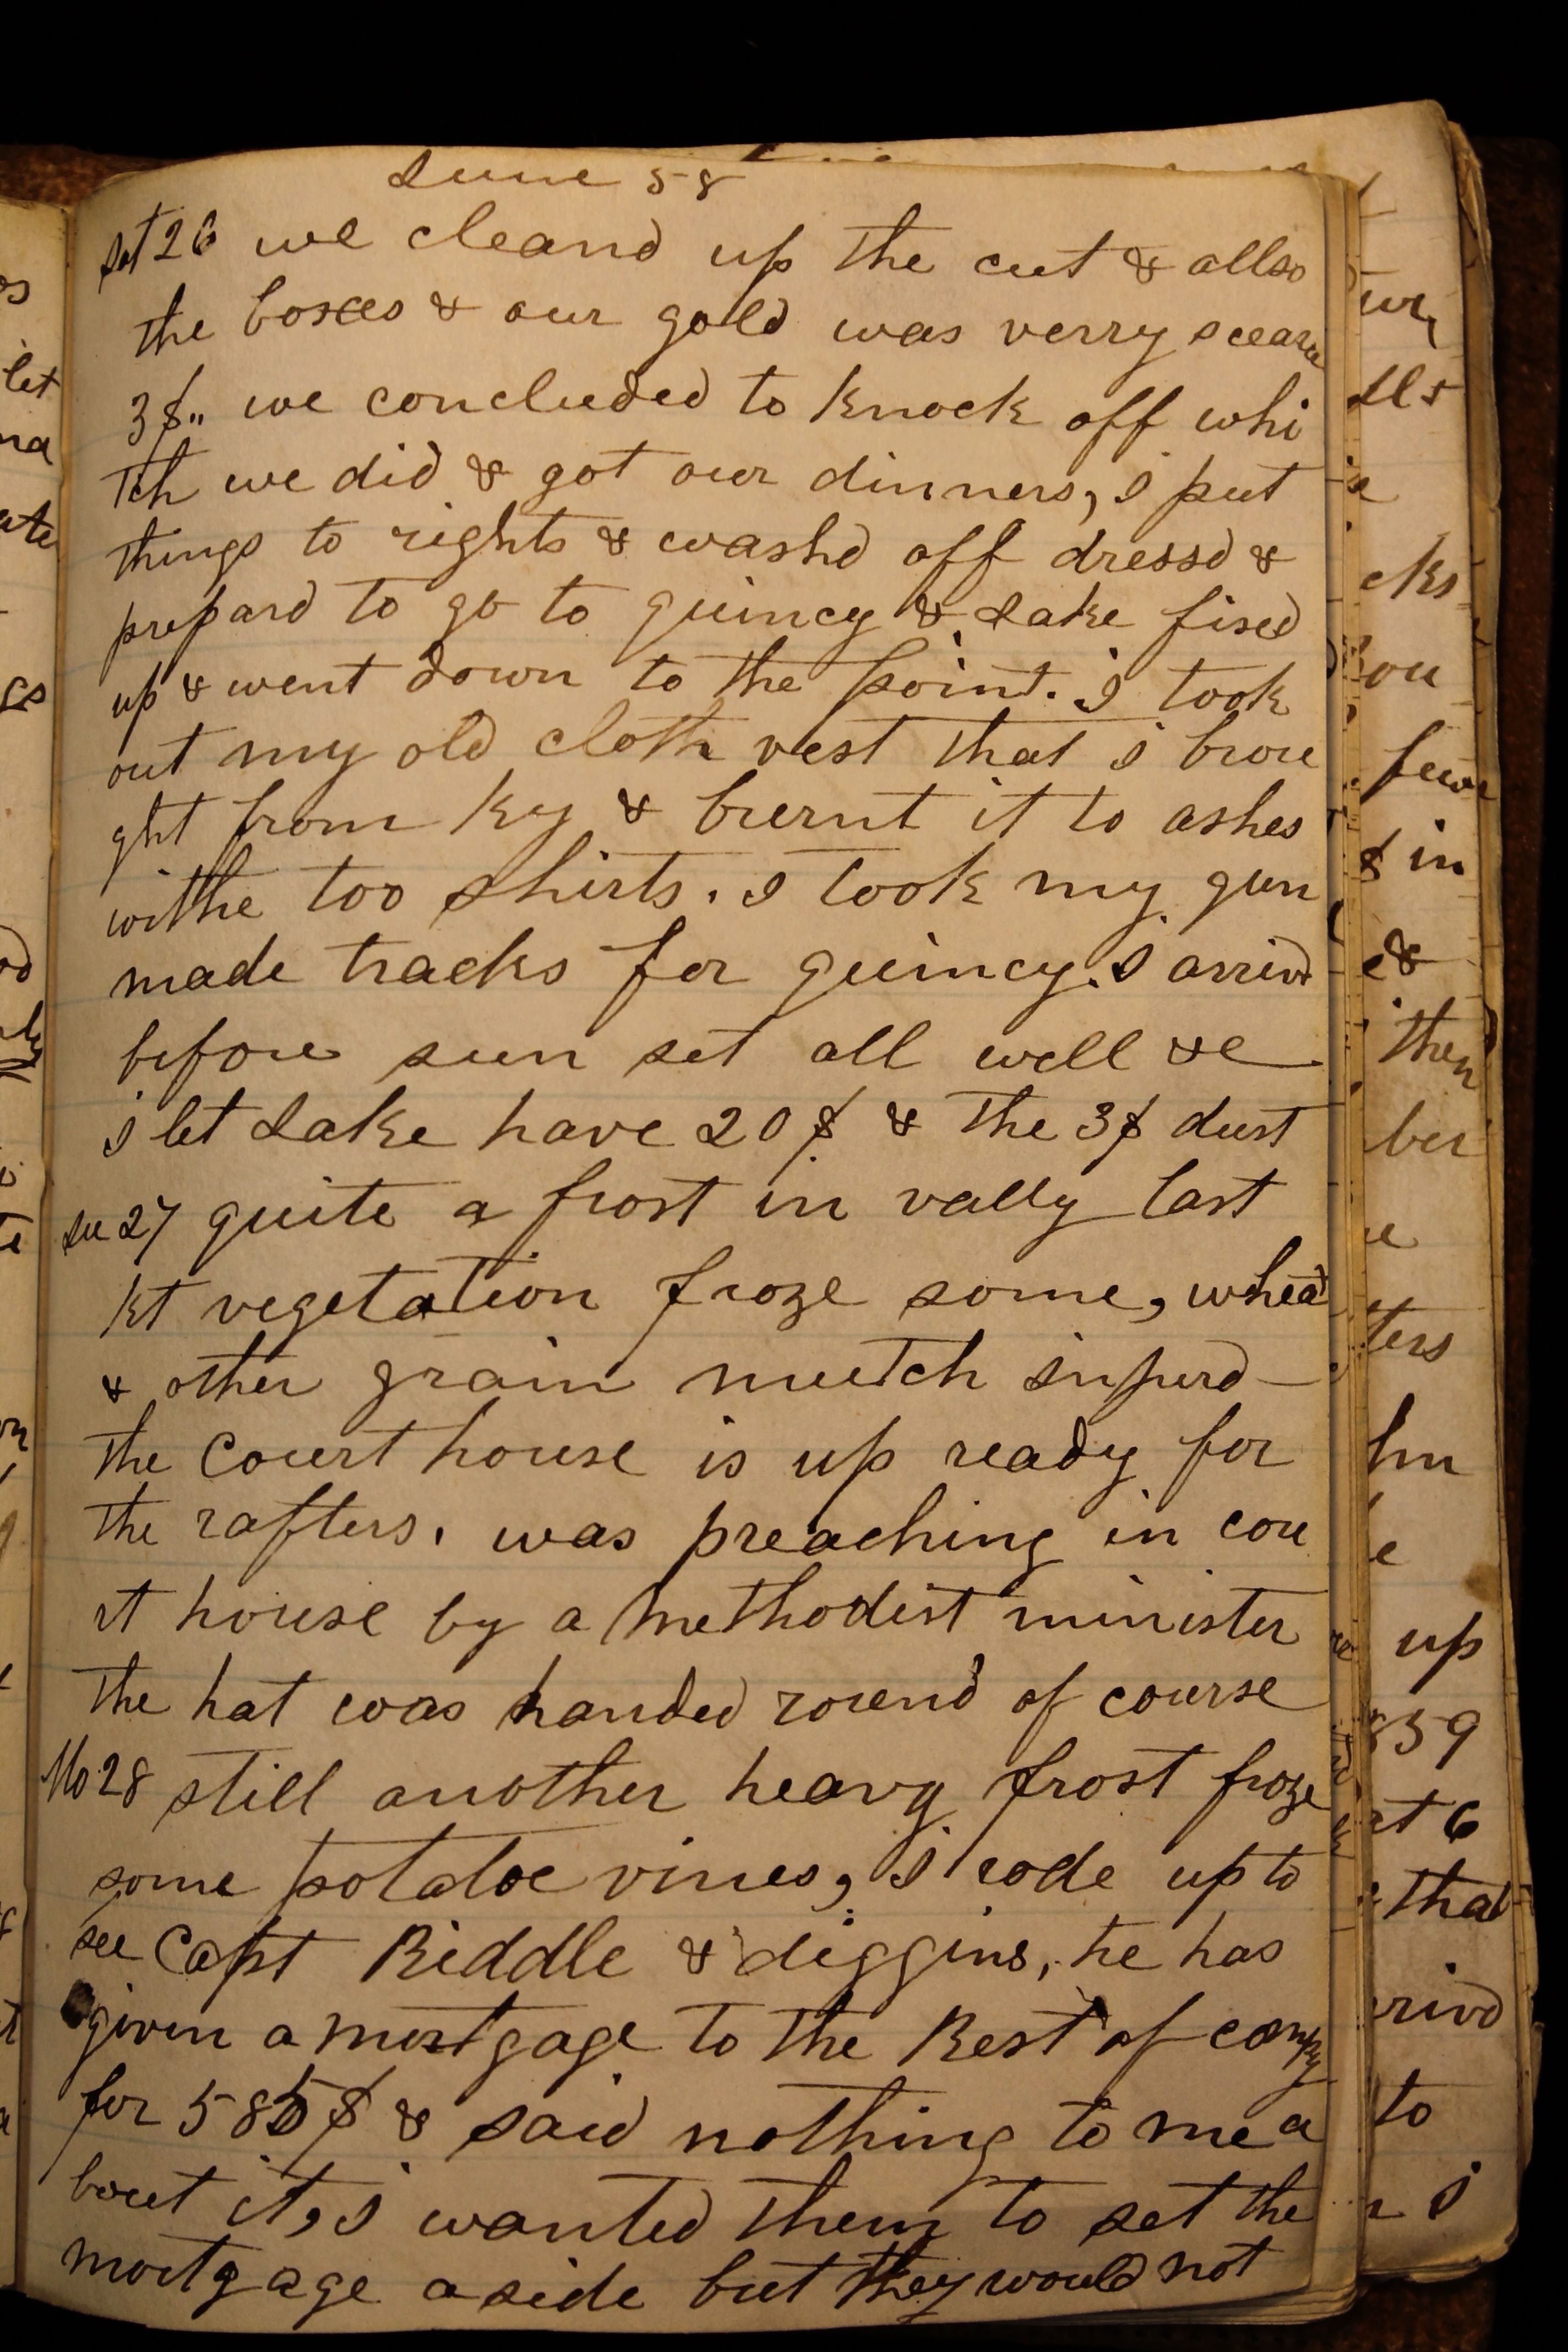 June 58
Sat 26 we cleand up the cut & allso
the boxes & our gold was verry scearce
3$,, we concluded to knock off whi
tch we did & got our dinners, I put
things to rights & washd off dressd &
prepard to go to quincy & Jake fixed
up & went down to the point. I took
out my old cloth vest that I brou
ght from Ky & burnt it to ashes
withe too shirts. I took my gun
made tracks for quincy. I arrivd
before sun set all well &c
I let Jake have 20$ & the 3$ dust
Su 27 quite a frost in vally last
Nt vegetation froze some, wheat
& other grain mutch injurd —
the Court house is up ready for
the rafters. was preaching in cou
rt house by a Methodist minister
the hat was handed round of course
Mo 28 still another heavy frost froze
some potatoe vines, I rode up to
see Capt Riddle & diggins, he has
given a mortgage to the Rest of compy
for 585$ & said nothing to me a
bout it, I wanted them to set the
mortgage aside but they would not